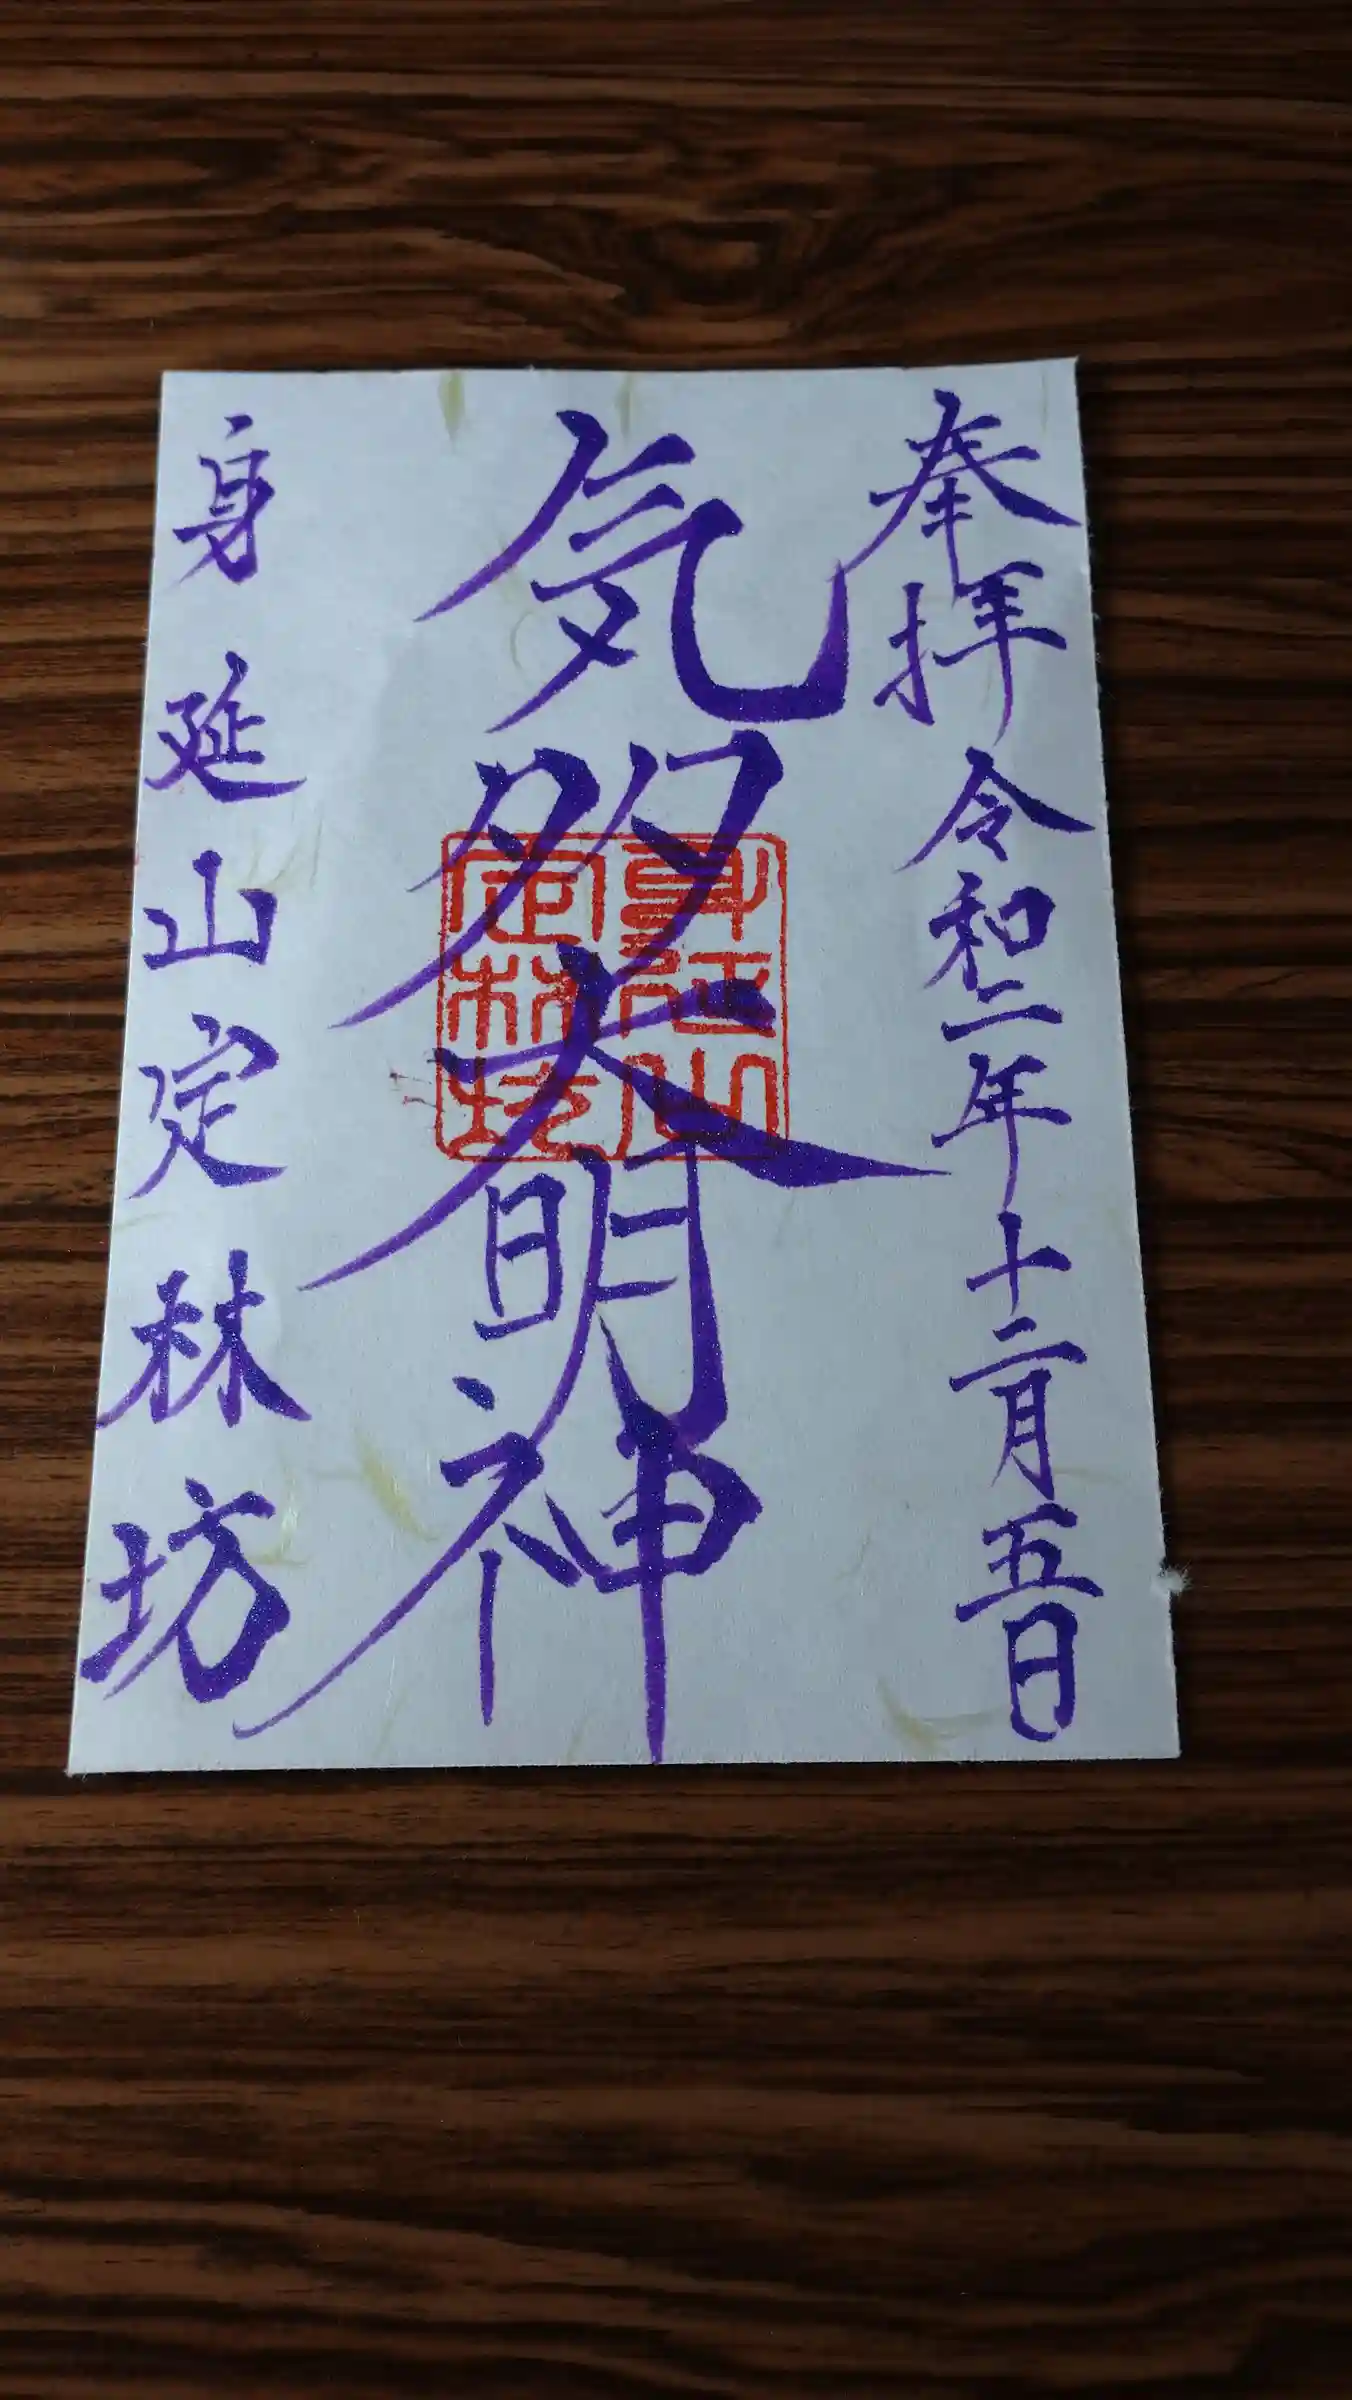 奉拝 令和二年十二月五日
気多大明神
身延山
定林坊
身延山定林坊